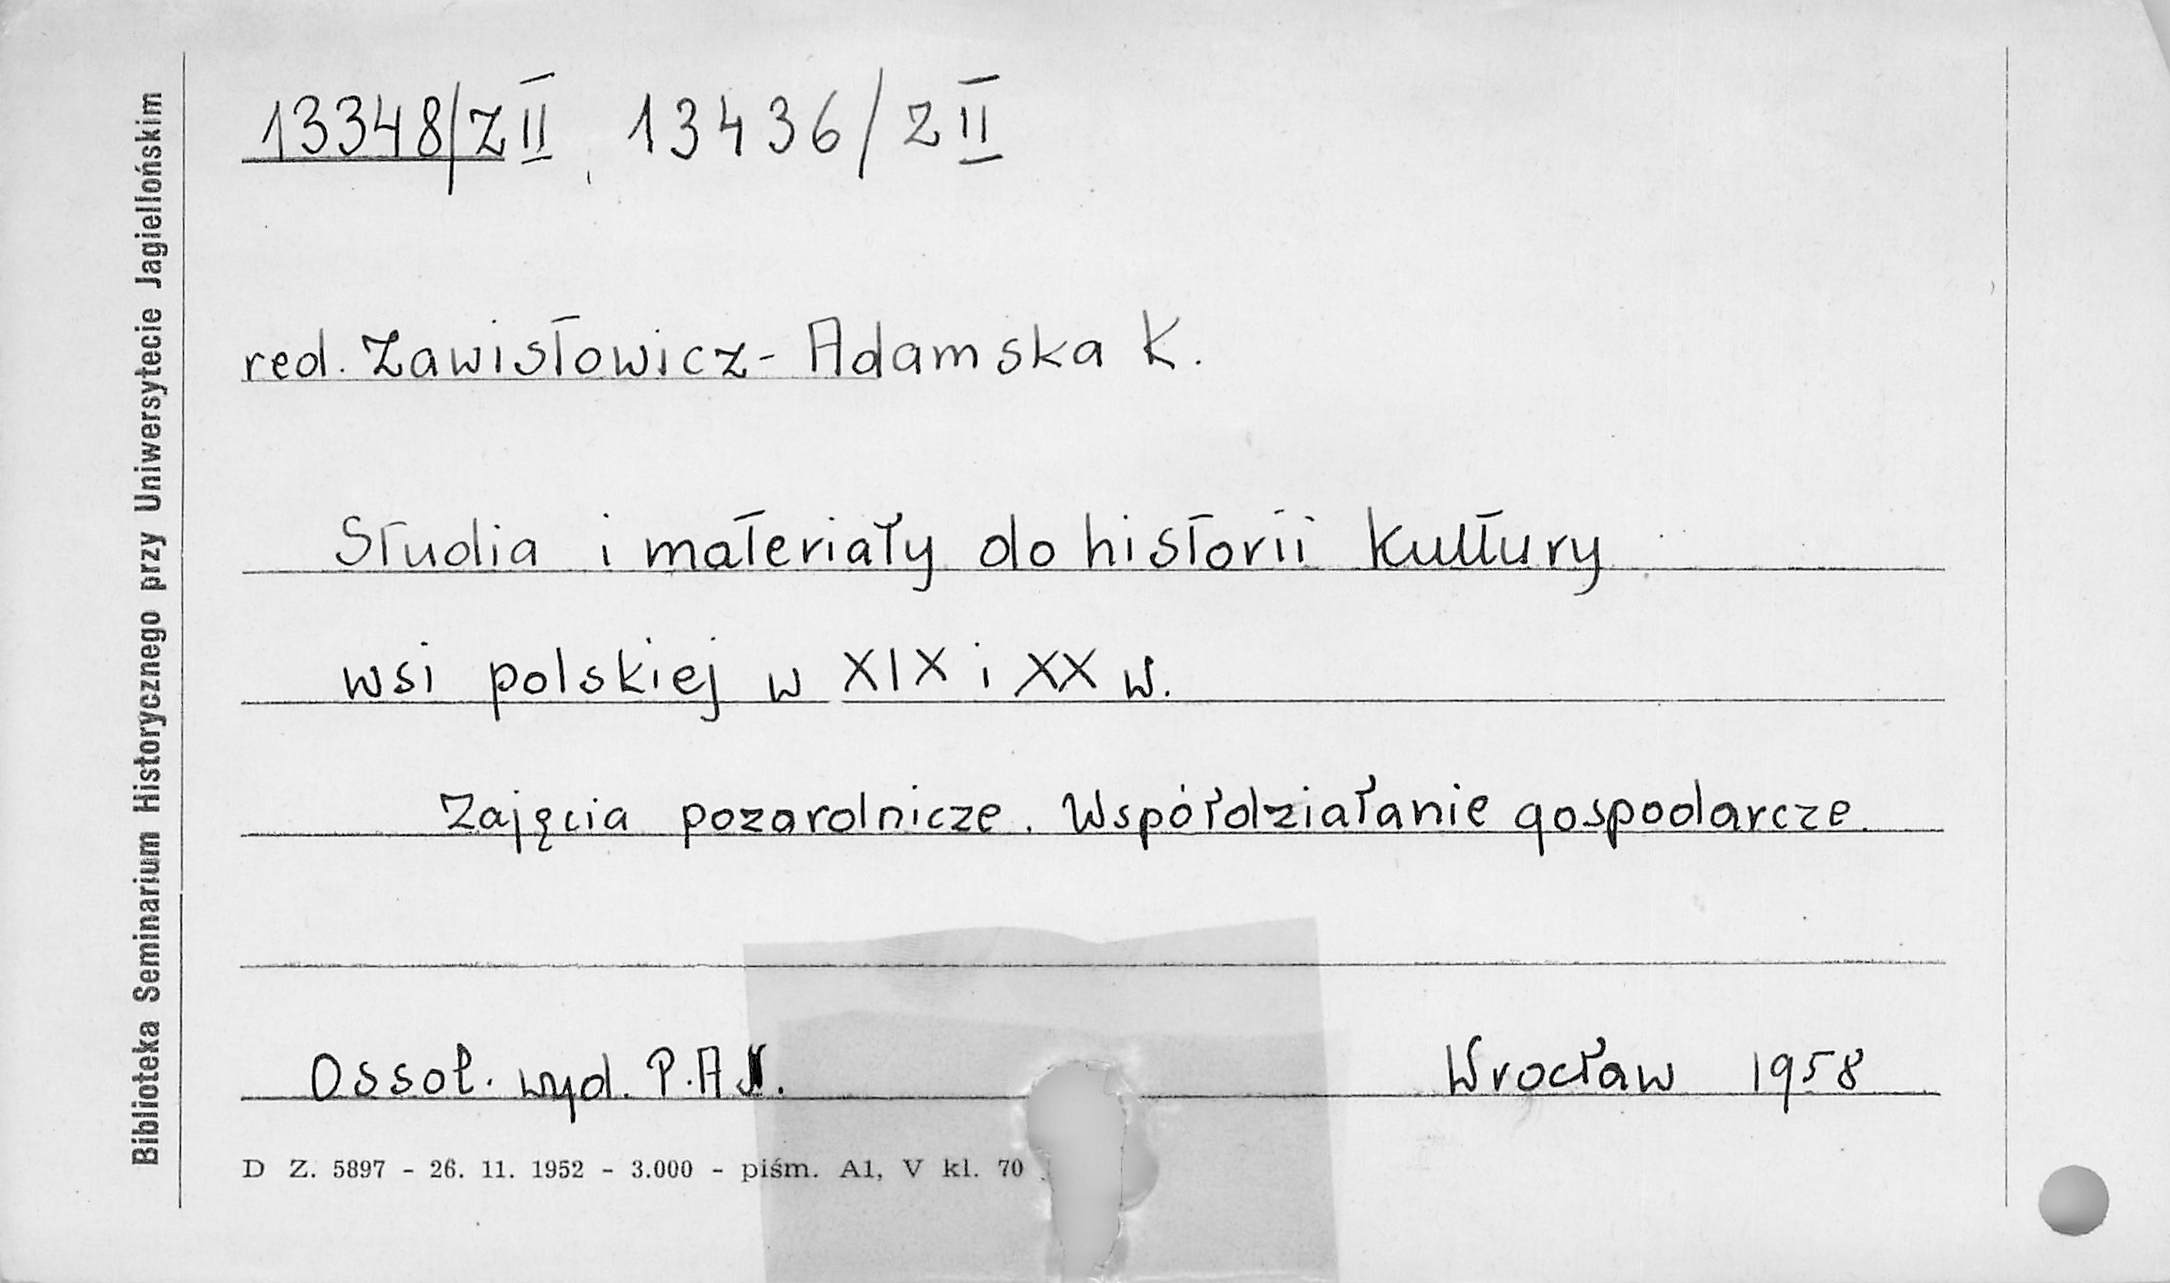 Biblioteka Seminarium Historycznego przy Uniwersytecie Jagiellońskim
13348/Z II, 13436/Z II
red. Zawisłowicz-Adamska K.
Studia i materiały do historii kultury
wsi polskiej w XIX i XX w.
Zajęcia pozarolnicze. Współdziałanie gospodarcze
Ossol. wyd. P.A.N. Wrocław 1958
D Z. 5897 - 26. 11. 1952 - 3.000 - piśm. A1, V kl. 70